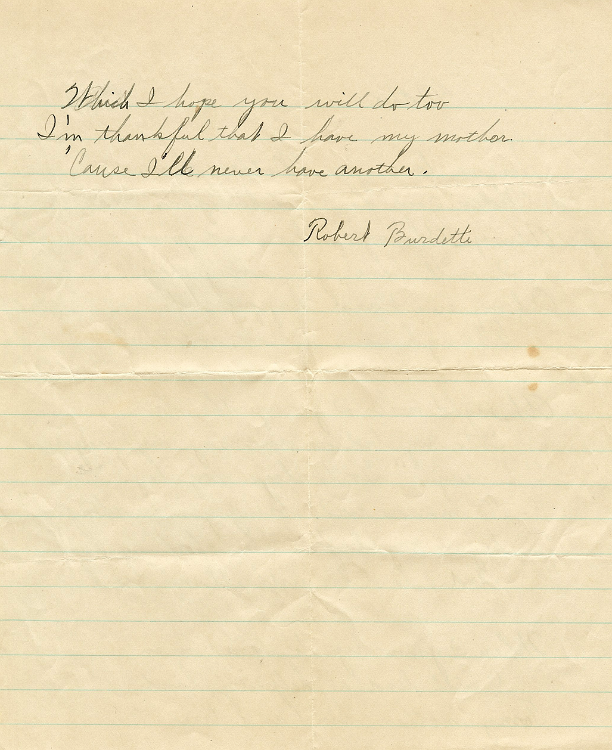 Which I hope you will do too
I'm thankful that I have my mother.
'Cause I'll never have another.
Robert Burdette